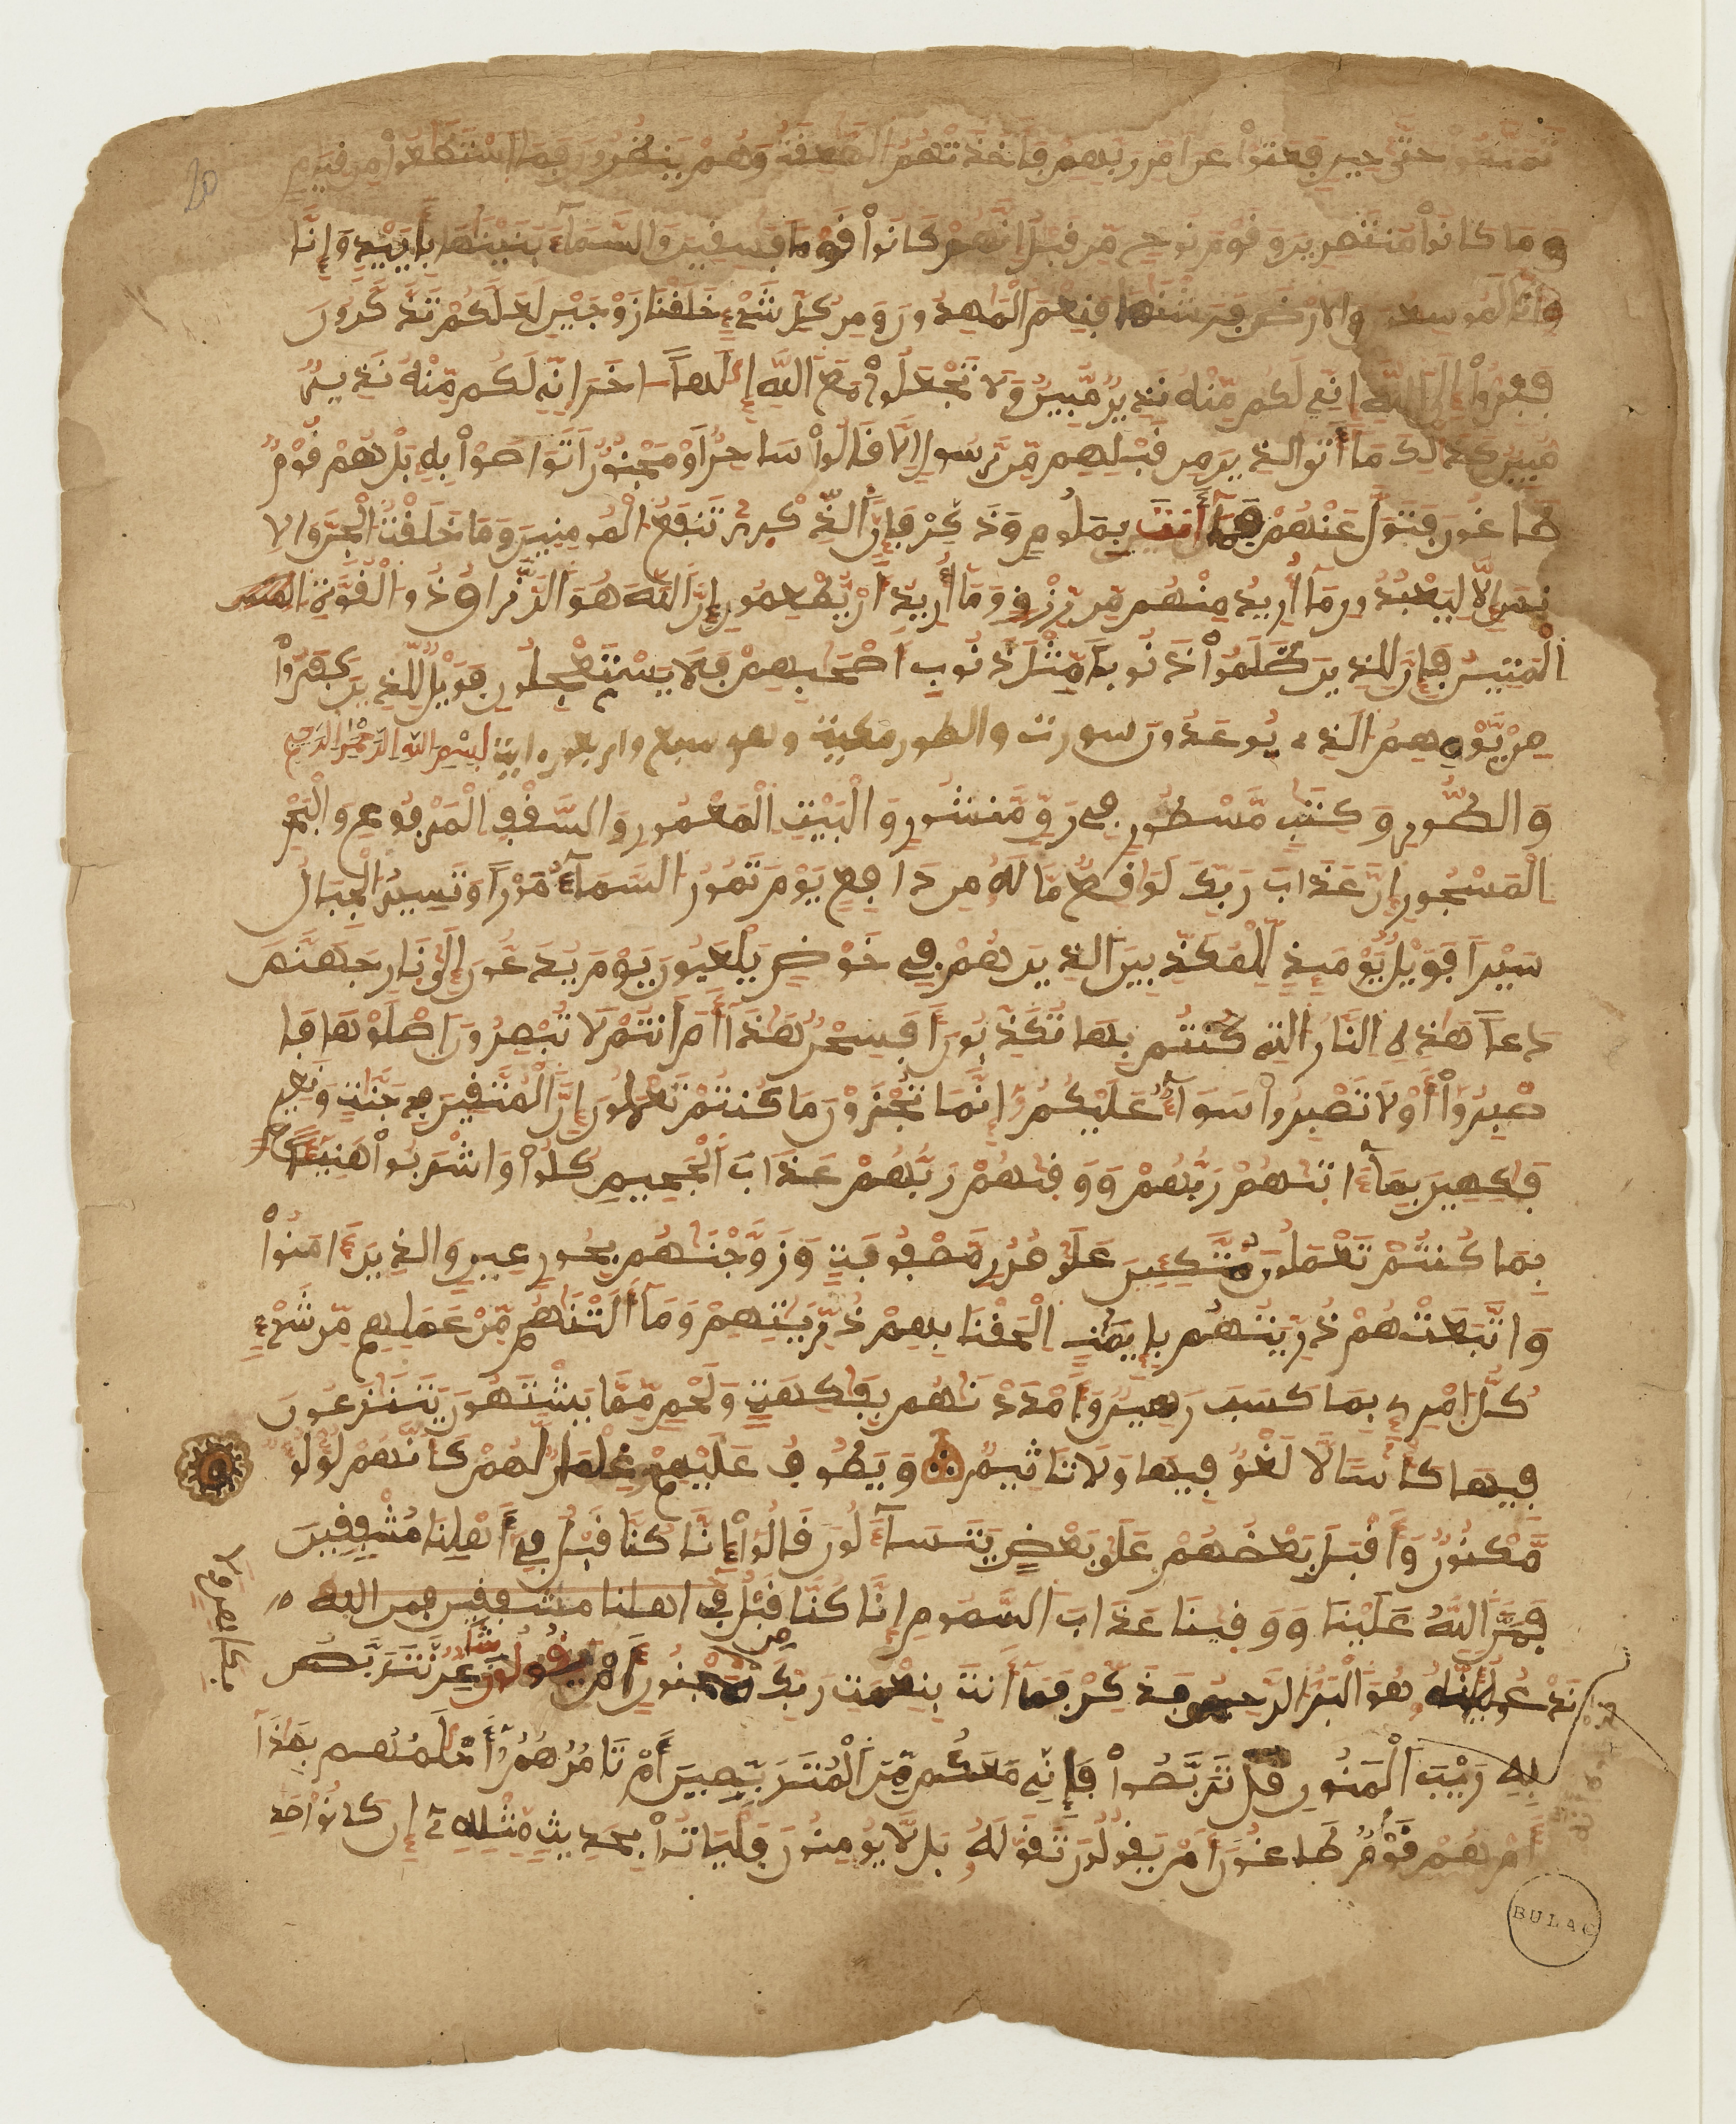 تَمَتَّعُواْ حَتَّىٰ حِينٍ فَعَتَوْاْ عَنَ امْرِ رَبِّهِمْ فَأَخَذَتْهُمُ الصَّٰعِقَةُ وَهُمْ يَنظُرُونَ فَمَا اسْتَطَٰعُواْ مِن قِيَامٍ
وَمَا كَانُواْ مُنتَصِرِينَ وَقَوْمَ نُوحٍ مِّن قَبْلُ إِنَّهُمْ كَانُواْ قَوْماً فَٰسِقِينَ وَالسَّمَآءَ بَنَيْنَٰهَا بِأَيْيْدٍ وَإِنَّا
وَإِنَّا لَمُوسِعُونَ وَالَارْضَ فَرَشْنَٰهَا فَنِعْمَ الْمَٰهِدُونَ وَمِن كُلِّ شَيْءٍ خَلَقْنَا زَوْجَيْنِ لَعَلَّكُمْ تَذَّكَّرُونَ
فَفِرُّواْ إِلَى اللَّهِ إِنِّي لَكُم مِّنْهُ نَذِيرٌ مُّبِينٌ وَلَا تَجْعَلُواْ مَعَ اللَّهِ إِلَٰهاً اخَرَ إِنِّي لَكُم مِّنْهُ نَذِيرٌ
مُّبِينٌ كَذَٰلِكَ مَآ أَتَى الذِينَ مِن قَبْلِهِم مِّن رَّسُولٍ إِلَّا قَالُواْ سَاحِرٌ اَوْ مَجْنُونٌ اَتَوَاصَوْاْ بِهِ بَلْ هُمْ قَوْمٌ
طَاغُونَ فَتَوَلَّ عَنْهُمْ فَمَآ أَنتَ بِمَلُومٍ وَذَكِّرْ فَإِنَّ الذِّكْرَىٰ تَنفَعُ الْمُومِنِينَ وَمَا خَلَقْتُ الْجِنَّ وَالِا
نسَ إِلَّا لِيَعْبُدُونِ مَآ أُرِيدُ مِنْهُم مِّن رِّزْقٍ وَمَآ أُرِيدُ أَنْ يُّطْعِمُونِ إِنَّ اللَّهَ هُوَ الرَّزَّاقُ ذُو الْقُوَّةِ المتين
الْمَتِينُ فَإِنَّ لِلذِينَ ظَلَمُواْ ذَنُوباً مِّثْلَ ذَنُوبِ أَصْحَٰبِهِمْ فَلَا يَسْتَعْجِلُونِ فَوَيْلٌ لِّلذِينَ كَفَرُواْ
مِنْ يَّوْمِهِمُ الذِي يُوعَدُونَ سورت والطور مكية وهو سبع واربعون اية بِسْمِ اللَّهِ الرَّحْمَٰنِ الرَّحِيمِ
وَالطُّورِ وَكِتَٰبٍ مَّسْطُورٍ فِي رَقٍّ مَّنشُورٍ وَالْبَيْتِ الْمَعْمُورِ وَالسَّقْفِ الْمَرْفُوعِ وَالْبَحْرِ
الْمَسْجُورِ إِنَّ عَذَابَ رَبِّكَ لَوَٰقِعٌ مَّا لَهُ مِن دَافِعٍ يَوْمَ تَمُورُ السَّمَآءُ مَوْراً وَتَسِيرُ الْجِبَالُ
سَيْراً فَوَيْلٌ يَوْمَئِذٍ لِّلْمُكَذِّبِينَ الذِينَ هُمْ فِي خَوْضٍ يَلْعَبُونَ يَوْمَ يُدَعُّونَ إِلَىٰ نَارِ جَهَنَّمَ
دَعّاً هَٰذِهِ النَّارُ التِي كُنتُم بِهَا تُكَذِّبُونَ أَفَسِحْرٌ هَٰذَآ أَمَ اَنتُمْ لَا تُبْصِرُونَ اصْلَوْهَا فَا
صْبِرُواْ أَوْ لَا تَصْبِرُواْ سَوَآءٌ عَلَيْكُمُ إِنَّمَا تُجْزَوْنَ مَا كُنتُمْ تَعْمَلُونَ إِنَّ الْمُتَّقِينَ فِي جَنَّٰتٍ وَنَعِيمٍ
فَٰكِهِينَ بِمَآ ءَاتَىٰهُمْ رَبُّهُمْ وَوَقَىٰهُمْ رَبُّهُمْ عَذَابَ الْجَحِيمِ كُلُواْ وَاشْرَبُواْ هَنِيئاً
بِمَا كُنتُمْ تَعْمَلُونَ مُتَّكِئِينَ عَلَىٰ سُرُرٍ مَّصْفُوفَةٍ وَزَوَّجْنَٰهُم بِحُورٍ عِينٍ وَالذِينَ ءَامَنُواْ
وَاتَّبَعَتْهُمْ ذُرِّيَّتُهُم بِإِيمَٰنٍ اَلْحَقْنَا بِهِمْ ذُرِّيَّٰتِهِمْ وَمَآ أَلَتْنَٰهُم مِّنْ عَمَلِهِم مِّن شَيْءٍ
كُلُّ امْرِئٍ بِمَا كَسَبَ رَهِينٌ وَأَمْدَدْنَٰهُم بِفَٰكِهَةٍ وَلَحْمٍ مِّمَّا يَشْتَهُونَ يَتَنَٰزَعُونَ
فِيهَا كَأْساً لَّا لَغْوٌ فِيهَا وَلَا تَاثِيمٌ وَيَطُوفُ عَلَيْهِمْ غِلْمَانٌ لَّهُمْ كَأَنَّهُمْ لُؤْلُؤٌ
مَّكْنُونٌ وَأَقْبَلَ بَعْضُهُمْ عَلَىٰ بَعْضٍ يَتَسَآءَلُونَ قَالُواْ إِنَّا كُنَّا قَبْلُ فِي أَهْلِنَا مُشْفِقِينَ
فَمَنَّ اللَّهُ عَلَيْنَا وَوَقَىٰنَا عَذَابَ السَّمُومِ إِنَّا كُنَّا قَبْلُ في اهلنا مشفقين فمن الله
نَدْعُوهُ أَنَّهُ هُوَ الْبَرُّ الرَّحِيمُ فَذَكِّرْ فَمَآ أَنتَ بِنِعْمَتِ رَبِّكَ مَجْنُونٍ أَمْ يَقُولُونَ شَاعِرٌ نَّتَرَبَّصُ
بِهِ رَيْبَ الْمَنُونِ قُلْ تَرَبَّصُواْ فَإِنِّي مَعَكُم مِّنَ الْمُتَرَبِّصِينَ أَمْ تَامُرُهُمُ أَحْلَٰمُهُم بِهَٰذَآ
أَمْ هُمْ قَوْمٌ طَاغُونَ أَمْ يَقُولُونَ تَقَوَّلَهُ بَل لَّا يُومِنُونَ فَلْيَاتُواْ بِحَدِيثٍ مِّثْلِهِ إِن كَانُواْ صَٰدِ
BULAC